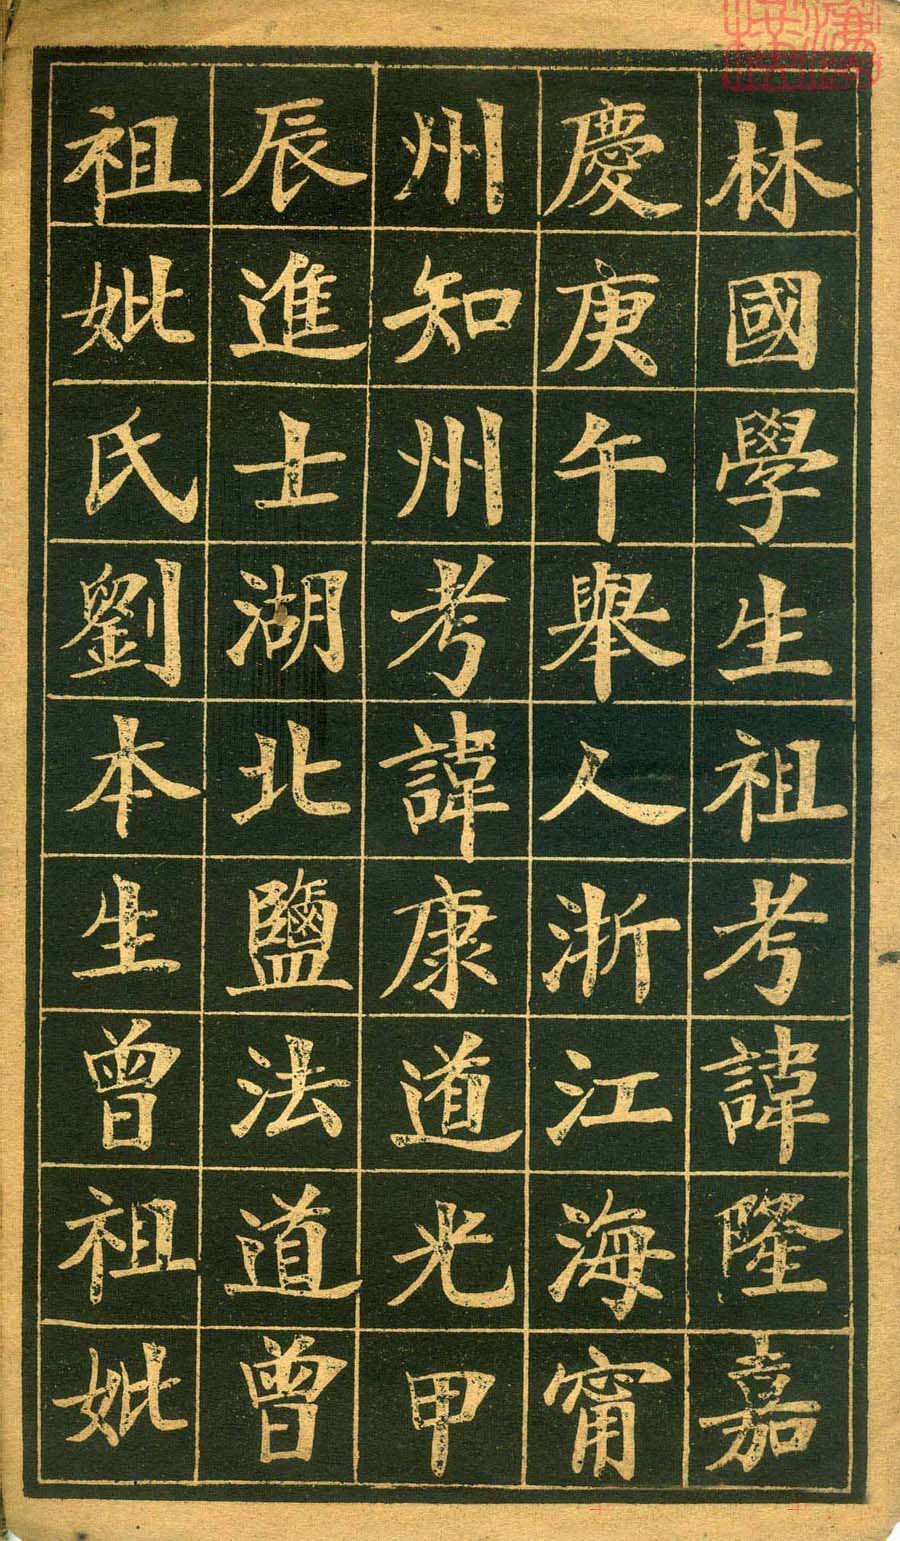 林國學生祖考諱隆嘉
慶庚午舉人浙江海甯
州知州考諱康道光甲
辰進士湖北鹽法道曾
祖妣氏劉本生曾祖妣